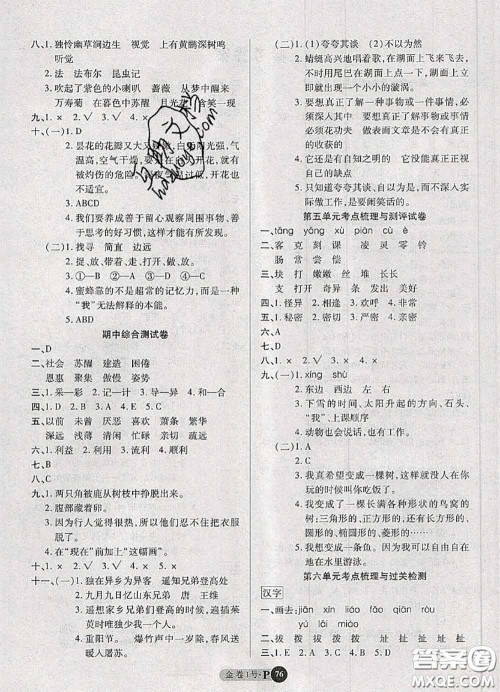 八、1. 独怜幽草涧边生 视觉 上有黄鹂深树鸣
听觉
2. 法 法布尔 昆虫记
3. 吹起了紫色的小喇叭 蔷薇 从梦中醒来
万寿菊 在暮色中苏醒 月光花 含笑一现
十、(一)1. D
2. 昙花的花瓣又大又娇嫩,白天阳光强,气
温高,空气干燥,要是在白天开花,就有
被灼伤的危险。深夜气温过低,开花也
不适宜。
3. ABCD
4. 我们要养成善于留心观察周围事物、善
于思考的好习惯,这样才能有所发现。
(二)1. 找寻 简直 远远
2. 捉、放、带着、走、打开、放。
3. ①—B ②—A ③—D ④—C
4. 蜜蜂靠的不是超常的记忆力,而是一种
“我”无法解释的本能。
5. ABD
期中综合测试卷
一、D
二、社会 苏醒 建造 困倦
恩惠 聚集 傲慢 姿势
三、1. 采—彩 2. 记—计 3. 导—异 4. 和—合
四、1. D 2. B 3. A 4. E 5. C
五、以前 未曾 厌恶 喜欢 萧条 繁华
深远 浅薄 清闲 忙碌 承担 推卸
六、1. 利益 2. 利用 3. 流利 4. 顺利
七、B
八、B
九、1. × 2. √ 3. × 4. √
十、1. 两只角被鹿从树枝中挣脱出来。
2. 腹部藏着卵。
3. 因为行人觉得很熟,所以他忽视了自己的
影子。
4. 在“现在”前加上“这幅画”。
十一、(一)1. 独在异乡为异客 遥知兄弟登高处
2. 九月九日忆山东兄弟 唐 王维
3. 遥遥想象家乡兄弟们登高时,遍插茱
萸少一人的情景。
4. 重阳节。 爆竹声中一岁除,春风送
暖入屠苏。
(二)1. 夸夸其谈 (2)不以为然
2. 蜻蜓高兴地唱着歌,在湖面上飞来飞去,
不时地还在湖面上荡起一个小小的漩涡。
3. 要想真正了解一种事物或一件事情,必
须深入其中才能有所收获。
4. 要想真正了解和掌握一件事物或事情,
必须花功夫 做到深入调查才会有真正
的收获
5. 还是有自知之明的 他没有因蜻蜓的表
扬而骄傲。
6. 说明有的人喜欢夸夸其谈,而不深入实
际做事,最终是要闹笑话的。
第五单元考点梳理与测评试卷
一、tǎng yǎng xù piàn cù è
二、客 克 刻 课 凌 灵 零 铃
肠 常 尝 偿
三、块 打 嫩嫩 丝 堆 长长
支 打开 奇异 条 发明 美丽
四、1. 怪异 2. 相逢 3. 欢呼 4. 非常
五、1. 安静 2. 秘密 3. 严密 4. 亲密
六、A
七、D
八、1. × 2. √ 3. √ 4. ×
九、(一)1. xíng shù
2. 东边 西边 左 右
3. 下雪的时间、太阳升起的方向、石头、
“我”上课顺序
4. 动物也会说话、自己走路。
(二)1. A
2. C
3. 我真希望变成一棵树,这样就没人在你
玩的时候叫你吃饭了!
4. 我变成了一棵长满各种形状的鸟窝的
树:三角形的、正方形的、长方形的、圆形
的、椭圆形的、菱形的……
5. 我想变成一条鱼,因为鱼可以自由自在
地在水里游玩。
第六单元考点梳理与过关检测
汉字
一、画去:jiān xín liáo fāo qiàn róu
yú láo mì
二、拨 拨 拨 拨 址 扯 扯 址 扯
金卷1号·P 76
答案圈
MXQE.COM